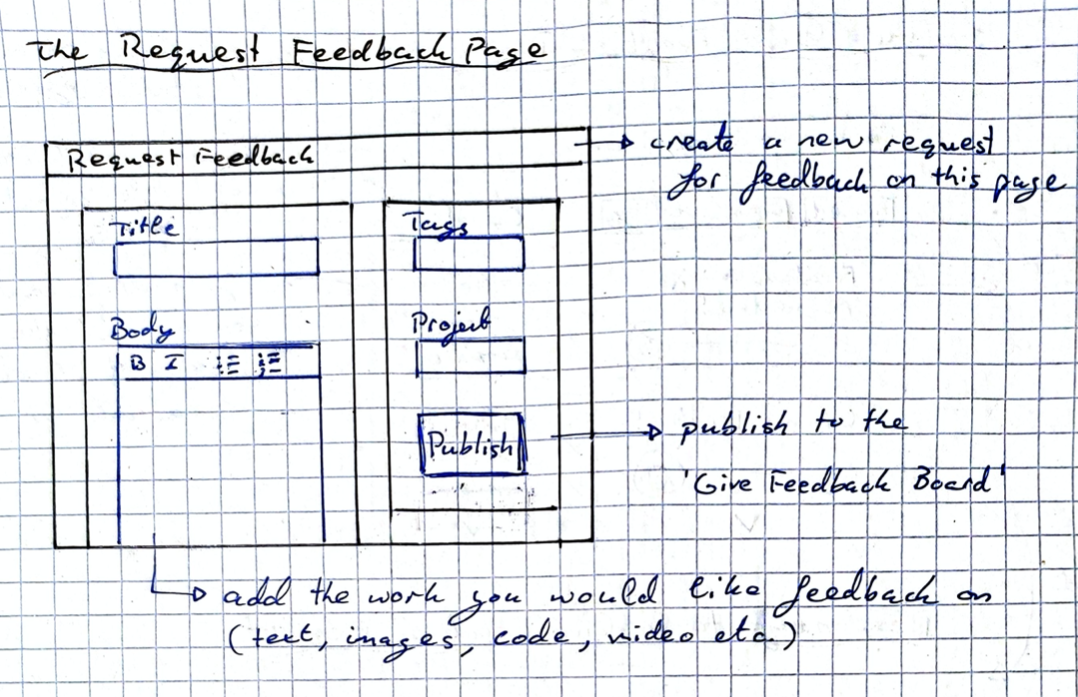 The Request Feedback Page
Request Feedback
→ create a new request
for feedback on this page
Title
Tags
Body
Project
B I
Publish
→ publish to the
'Give Feedback Board'
→ add the work you would like feedback on
(text, images, code, video etc.)